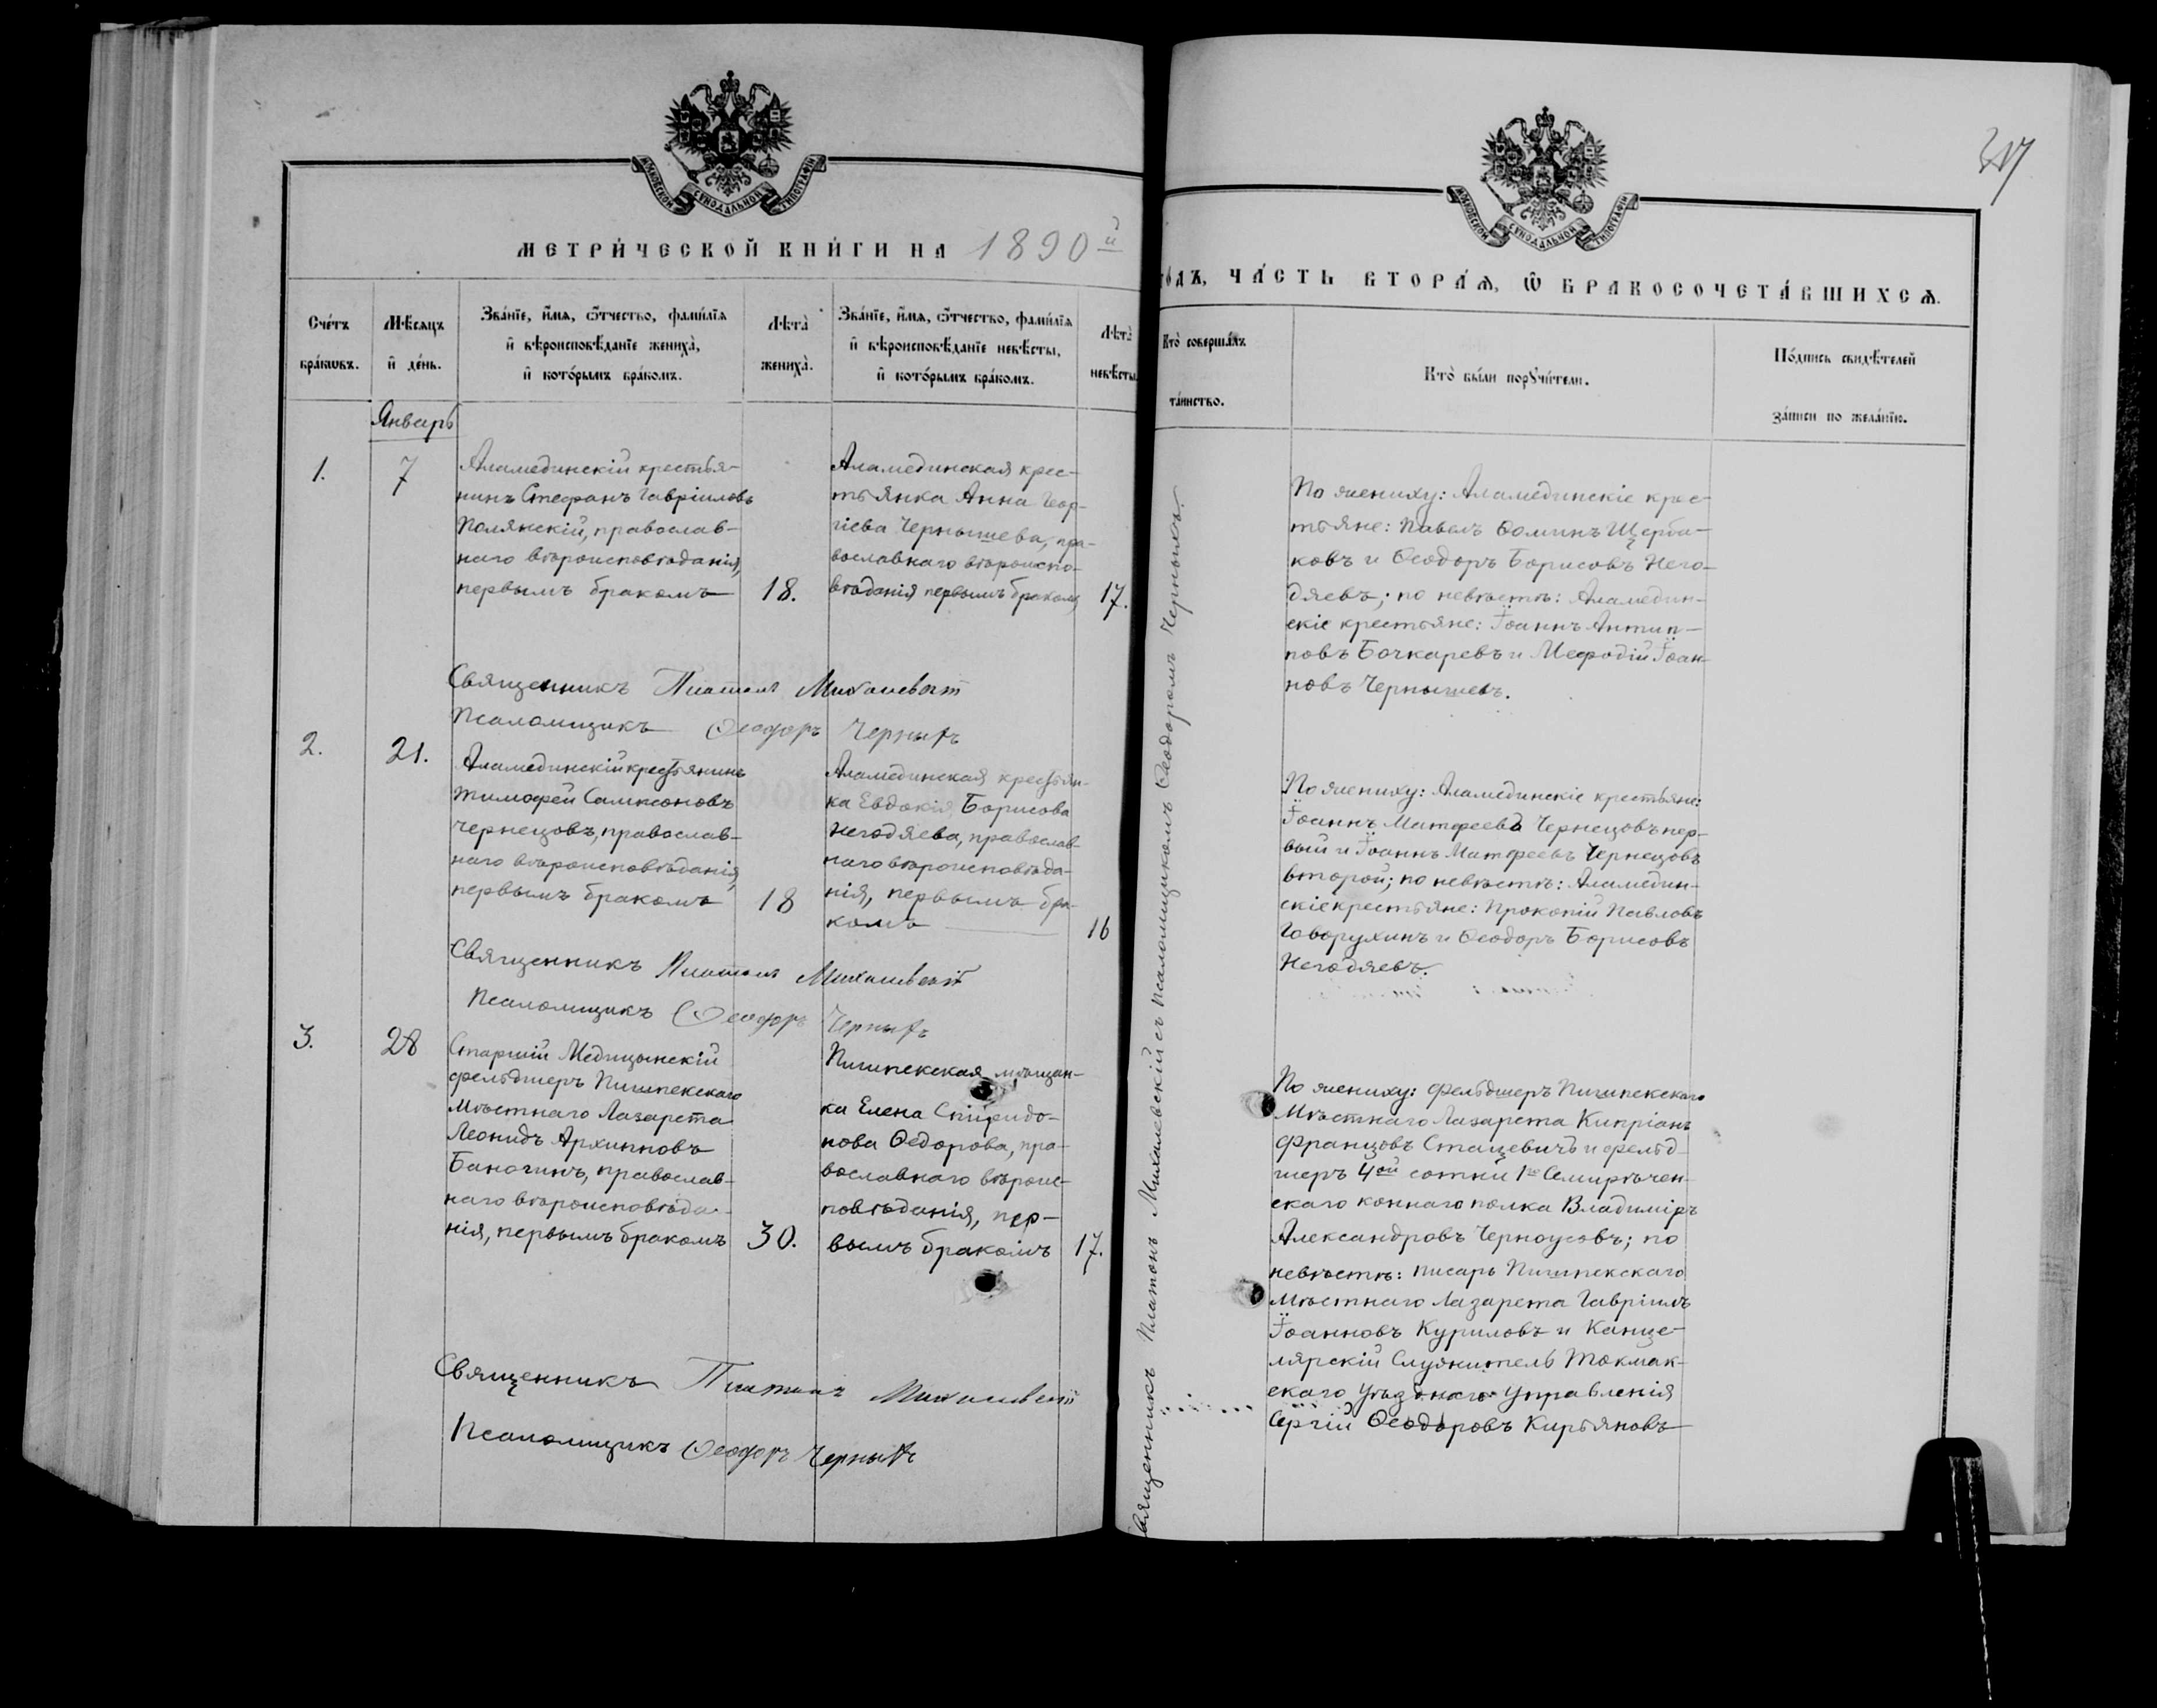 МЕТРИЧЕСКОЙ КНИГИ НА 1890й
Счетъ браковъ.
Мѣсяцъ и день.
Званіе, имя, отчество, фамилія
и вѣроисповѣданіе жениха,
и которымъ бракомъ.
Лѣта жениха.
Званіе, имя, отчество, фамилія
и вѣроисповѣданіе невѣсты,
и которымъ бракомъ.
Лѣта невѣсты
Январь
1.
7
Аламединскій крестья-
нинъ Стефанъ Гавріиловъ
Полянскій, православ-
наго вѣроисповѣданія,
первымъ бракомъ
18.
Аламединская крес-
тьянка Анна Геор-
гіева Чернышева, пра-
вославнаго вѣроиспо-
вѣданія первымъ бракомъ
17.
Священникъ Платонъ Михалевскій
Псаломщикъ Ѳеодоръ Черныхъ
2.
21.
Аламединскій крестьянинъ
Тимофей Сампсоновъ
Чернецовъ, православ-
наго вѣроисповѣданія,
первымъ бракомъ
18
Аламединская крестьян-
ка Евдокія Борисова
Негодяева, православ-
наго вѣроисповѣда-
нія, первымъ бра-
комъ
16
Священникъ Платонъ Михалевскій
Псаломщикъ Ѳеодоръ Черныхъ
3.
28
Старшій Медицынскій
фельдшеръ Пишпекскаго
Мѣстнаго Лазарета
Леонидъ Архипповъ
православ-
наго вѣроисповѣда-
нія, первымъ бракомъ
30.
Пишпекская мѣщан-
ка Елена Спиридо-
нова Ѳедорова, пра-
вославнаго вѣроис-
повѣданія, пер-
вымъ бракомъ
17.
Священникъ Платонъ Михалевскій
Псаломщикъ Ѳеодоръ Черныхъ
317
годъ, ЧАСТЬ ВТОРАЯ, Ѡ БРАКОСОЧЕТАВШИХСЯ.
Кто совершалъ таинство.
Кто были поручители.
Подпись свидѣтелей
записи по желанію.
Священникъ Платонъ Михалевскій съ псаломщикомъ Ѳеодоромъ Черныхъ.
По жениху: Аламединскіе крес-
тьяне: Павелъ Ѳоминъ Щерба-
ковъ и Ѳеодоръ Борисовъ Него-
дяевъ; по невѣстѣ: Аламедин-
скіе крестьяне: Іоаннъ Антип-
повъ Бочкаревъ и Мефодій Іоан-
новъ Чернышевъ.
По жениху: Аламединскіе крестьяне:
Іоаннъ Матфеевъ Чернецовъ пер-
вый и Іоаннъ Матфеевъ Чернецовъ
второй; по невѣстѣ: Аламедин-
скіе крестьяне: Прокопій Павловъ
Говорухинъ и Ѳеодоръ Борисовъ
Негодяевъ.
По жениху: фельдшеръ Пишпекскаго
Мѣстнаго Лазарета Кипріанъ
Францовъ Стацевичъ и фельд-
шеръ 4ой сотни 1го Семирѣчен-
скаго коннаго полка Владиміръ
Александровъ Черноусовъ; по
невѣстѣ: писарь Пишпекскаго
Мѣстнаго Лазарета Гавріилъ
Іоанновъ Куриловъ и Канце-
лярскій Служитель Токмак-
скаго Уѣзднаго Управленія
Сергій Ѳеодоровъ Кирьяновъ